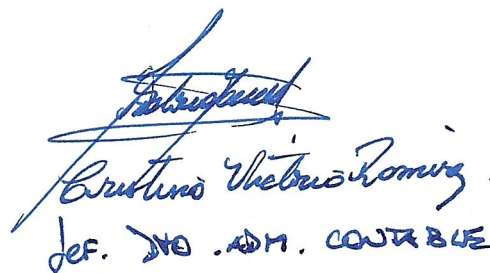 Cristino Victorio Romirez
Jef. DTO . ADM. CONTABLE